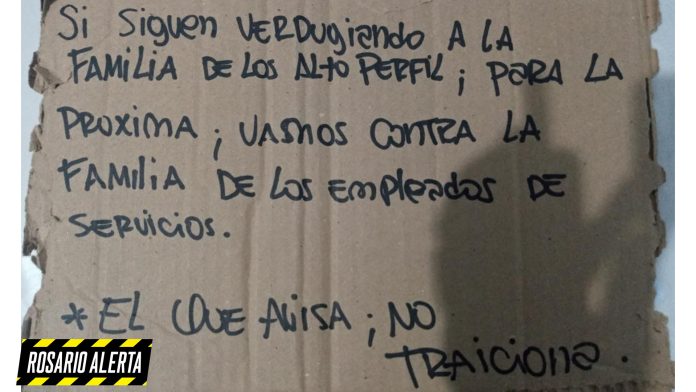 Si SiGUEN VERDUGIANDO A LA
FAMILIA DE LOS Alto PERFIL; PARA LA
PROXIMA; VAMOS CONTRA LA
FAMILIA DE LOS EMPLEADOS DE
SERVICIOS.
* EL QUE AVISA; NO
TRAICIONA.
ROSARIO ALERTA